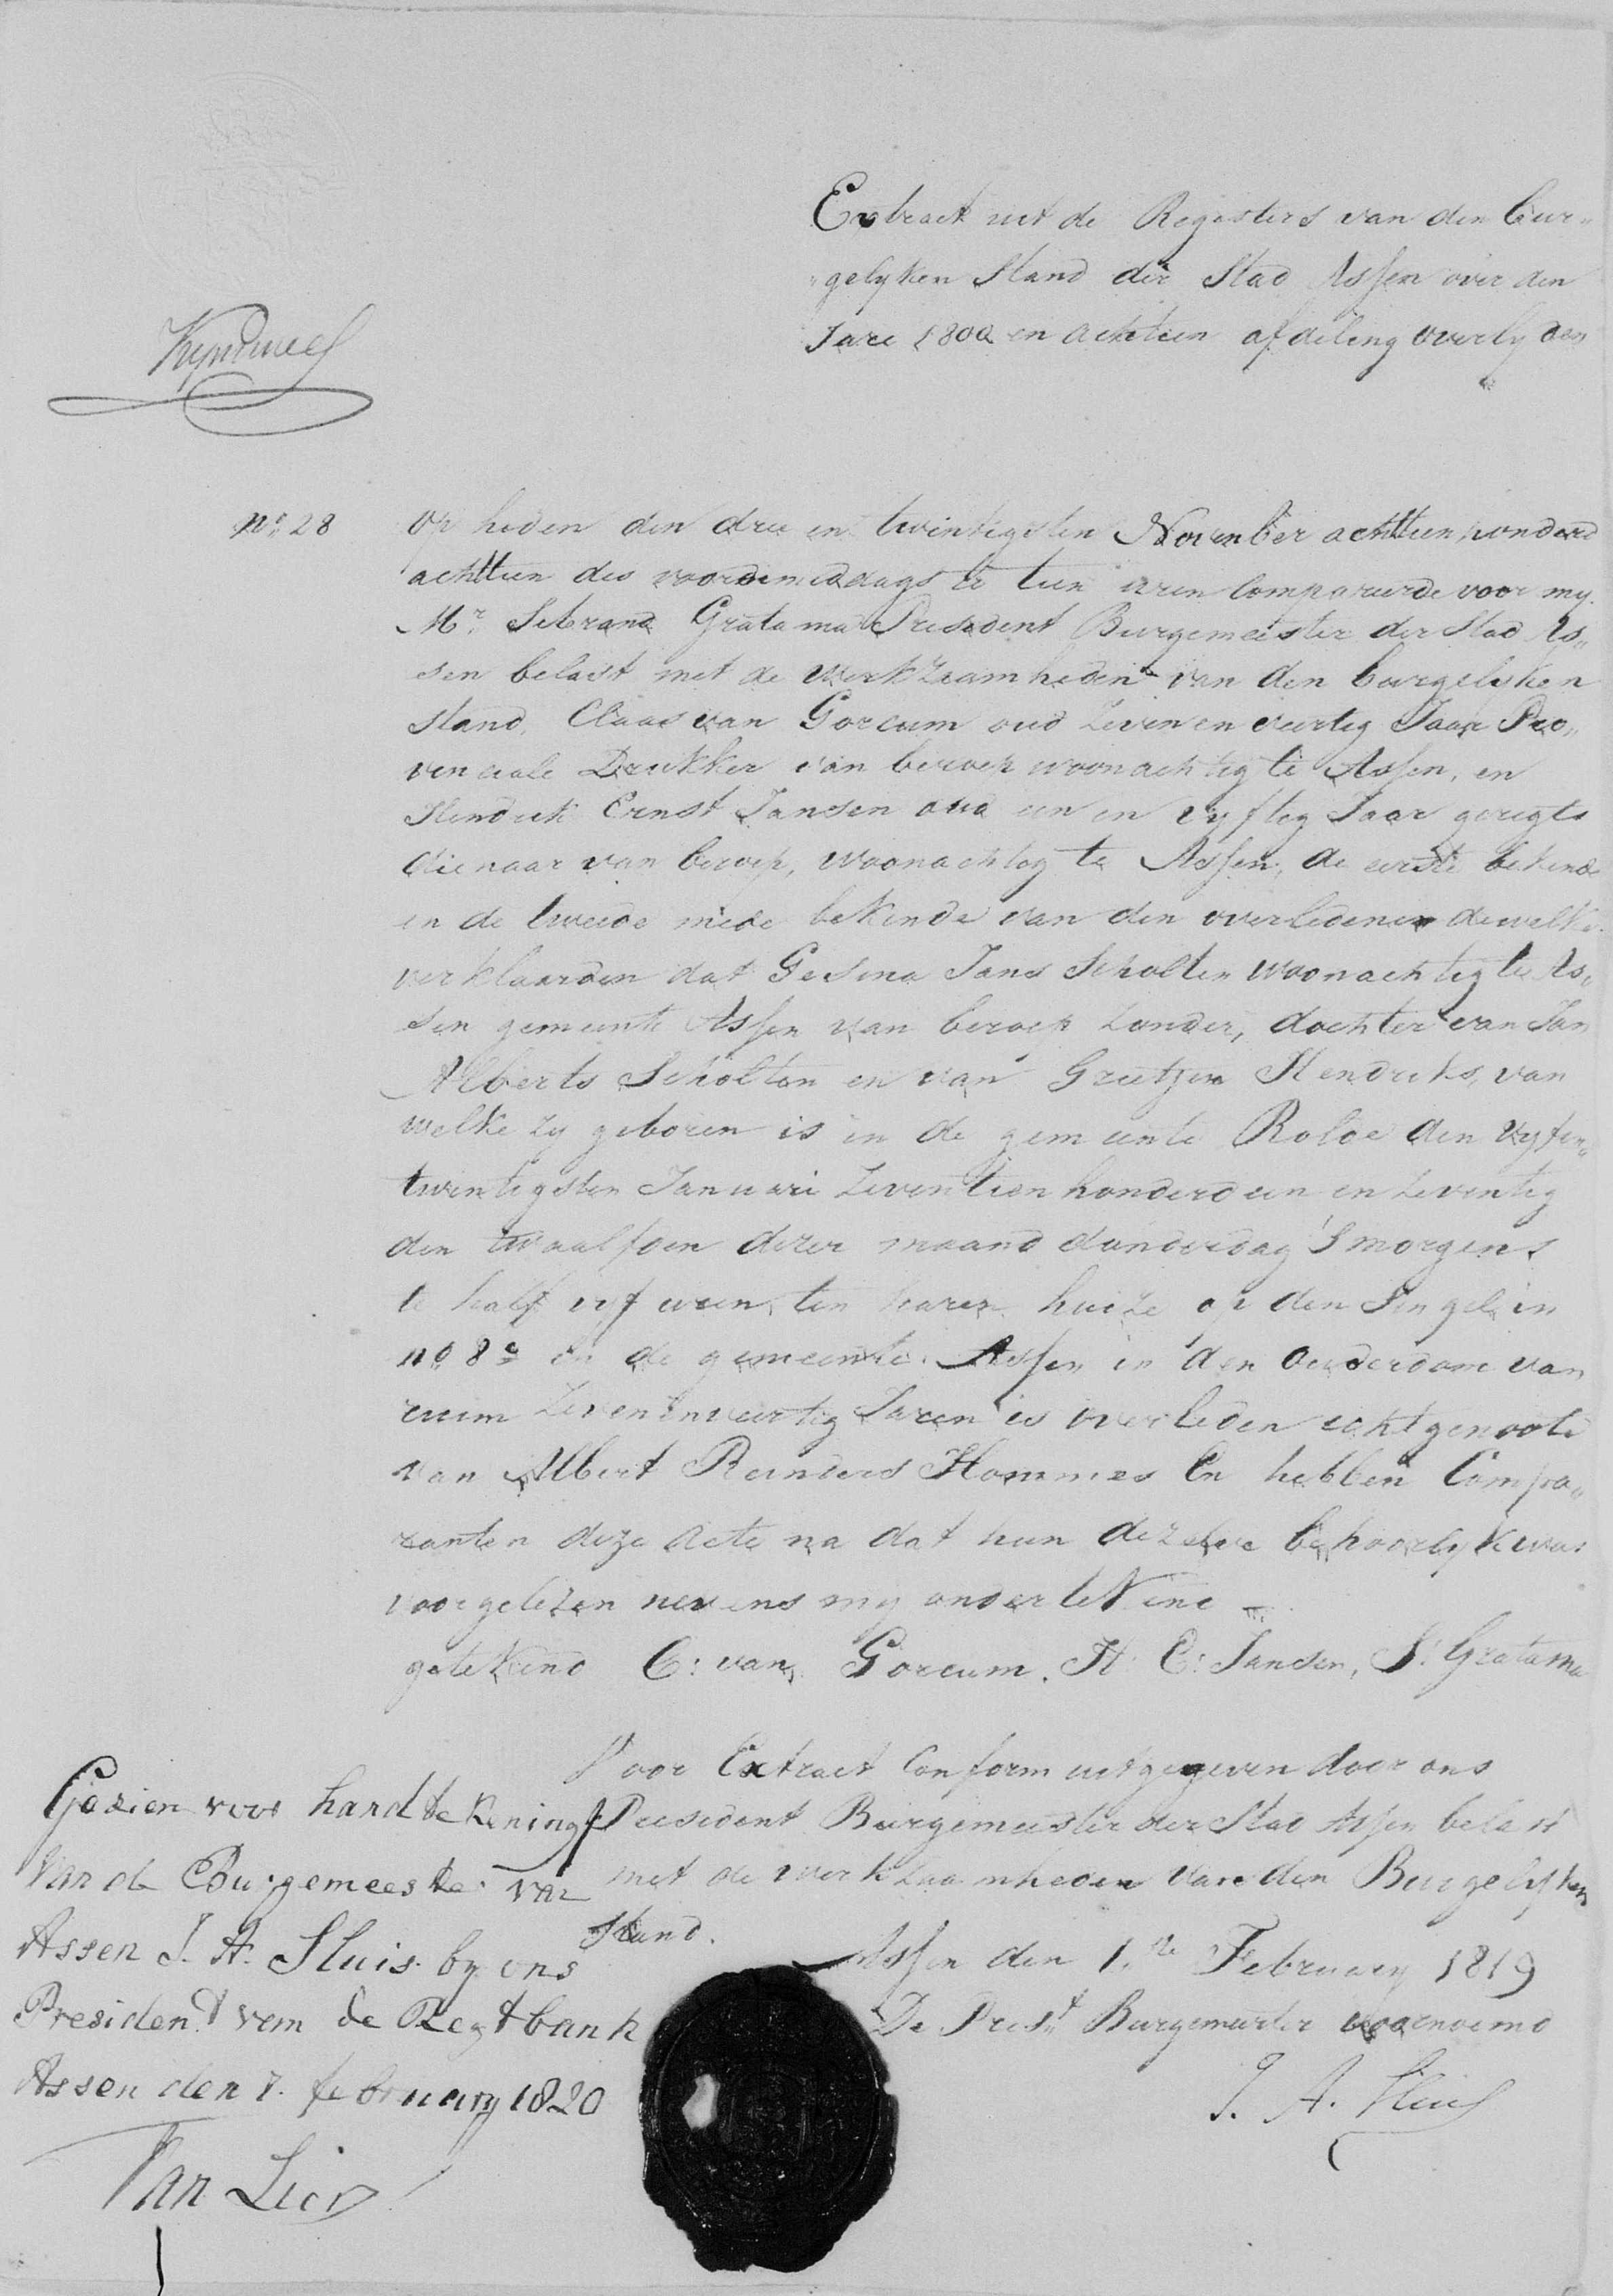 Extract uit de Registers van den bur„
„gelyken Stand der Stad Assen over den
Jare 1800 en achttien afdeling overlyden
no 28
Op heden den drie en twintigsten November achttien honderd
achttien des voordemiddags te tien uren Compareerde voor my
Mr. Sebrand Gratama President Burgemeester der Stad As„
sen belast met de werkzaamheden van den burgelyken
stand, Claas van Gorcum oud zeven en veertig Jaar Pro„
vinciale Drukker van beroep woonachtig te Assen, en
Hendrik Ernst Jansen oud een en vyftig Jaar geregts
dienaar van beroep, woonachtig te Assen, de eerste bekende
en de tweede mede bekende van den overledenen dewelke
verklaarden dat Gesina Jans Scholten woonachtig te As„
sen gemeente Assen van beroep zonder, dochter van Jan
Alberts Scholten en van Greetjen Hendriks, van
welke zy geboren is in de gemeente Rolde den vyfen„
twintigsten Januari zeventien honderd een en zeventig
den twaalfden dezer maand donderdag 's morgens
te half vyf uren, ten haren huize op den Singel in
no 8c in de gemeente Assen in den ouderdom van
ruim zevenenveertig Jaren is overleden echtgenoote
van Albert Reinders Hommes En hebben Compa„
ranten deze Acte na dat hun dezelve behoorlyk was
voorgelezen nevens my ondertekend
getekend C: van Gorcum. H. E: Jansen, S: Gratama
Voor Extract Conform uitgegeven door ons
President Burgemeester der Stad Assen belast
met de werkzaamheden van den Burgelyken
Stand.
Assen den 1.ste February 1819
De Prest. Burgemeester voornoemd
J. A. Sluis
Gezien voor handtekening
van de Burgemeester van
Assen J. A. Sluis by ons
President van de Regtbank
Assen den 7. february 1820
Van Lier